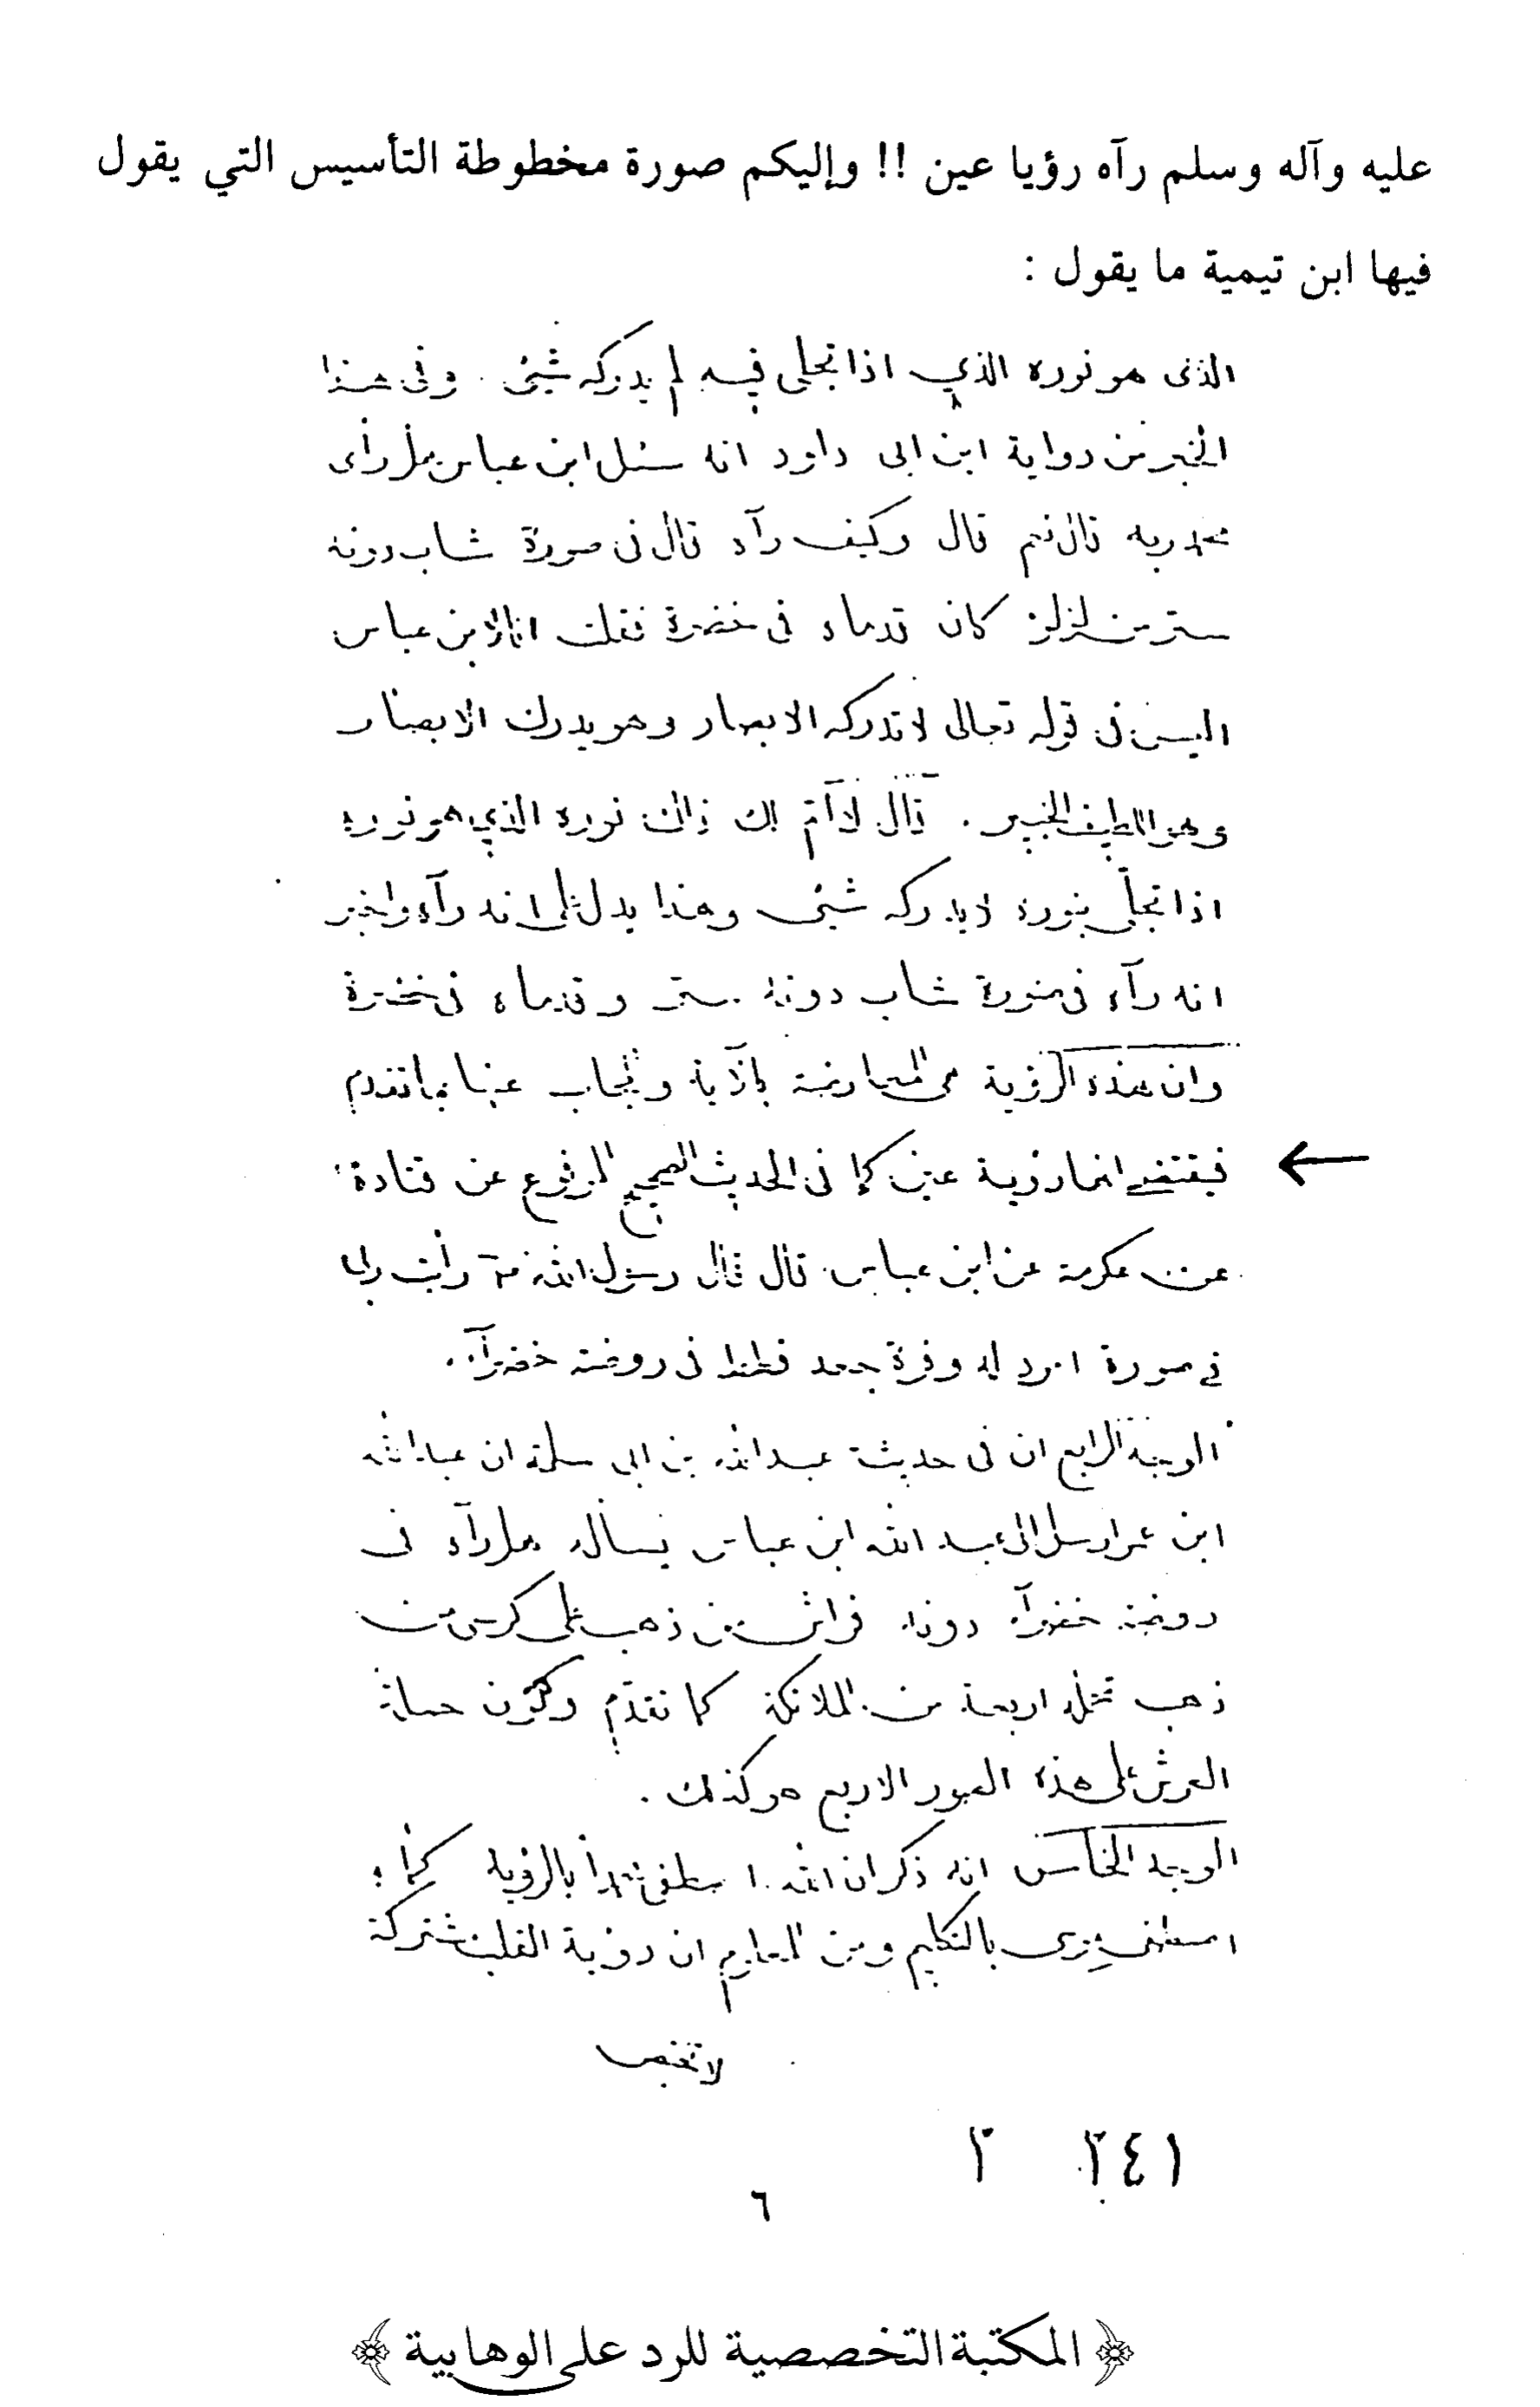 عليه وآله وسلم رآه رؤيا عين !! وإليكم صورة مخطوطة التأسيس التي يقول
فيها ابن تيمية ما يقول :
الذى هو نوره الذي اذا تجلى فيه لم يدركه شيئ . وفى هذا
الخبر من رواية ابن ابى داود انه سئل ابن عباس هل رأى
محمد ربه قال نعم قال وكيف رآه قال فى صورة شاب دونه
ستر من لؤلؤ كان قدماه فى خضرة فقلت انا لابن عباس
اليس فى قوله تعالى لا تدركه الابصار وهو يدرك الابصار
وهو اللطيف الخبير . قال لا أم لك ذاك نوره الذي هو نوره
اذا تجلى بنوره لا يدركه شيئ وهذا يدل على انه رآه واخبر
انه رآه فى صورة شاب دونه ستر وقدماه فى خضرة
وان هذه الرؤية هى المعارضة بالآية والمجاب عنها بما تقدم
فيقتضي انها رؤية عين كما فى الحديث الصحيح المرفوع عن قتادة
عن عكرمة عن ابن عباس قال قال رسول الله ص رأيت ربى
في صورة امرد له وفرة جعد قطط فى روضة خضرآء .
الوجه الرابع ان فى حديث عبد الله بن ابى سلمة ان عبد الله
ابن عمر ارسل الى عبد الله ابن عباس يسأله هل رآه فى
روضة خضرآء دونه فراش من ذهب على كرسى من
ذهب تحمله اربعة من الملائكة كما تقدم وكون حملة
العرش على هذه الصور الاربع هو كذلك .
الوجه الخامس انه ذكر ان الله اصطفى محمدا بالرؤية كما
اصطفى موسى بالتكليم ومن المعلوم ان رؤية القلب مشتركة
لا تختص
٢٤١ ٢
٦
﴿ المكتبة التخصصية للرد على الوهابية ﴾